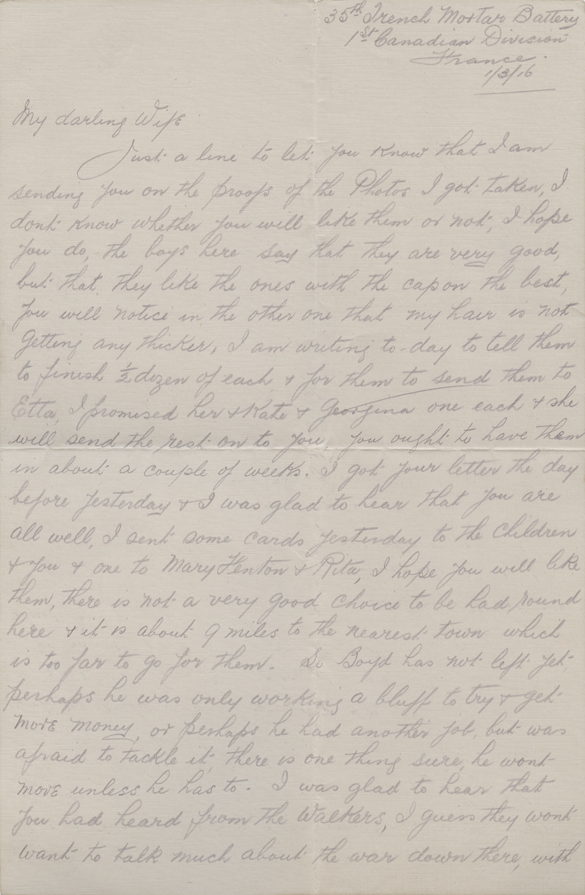 35th Trench Mortar Battery
1st Canadian Division
France.
1/3/16
My darling Wife
Just a line to let you know that I am
sending you on the proofs of the Photos I got taken, I
dont know whether you will like them or not, I hope
you do, the boys here say that they are very good,
but that they like the ones with the cap on the best,
you will notice in the other one that my hair is not
getting any thicker, I am writing to-day to tell them
to finish ½ dozen of each & for them to send them to
Etta, I promised her & Kate & Georgina one each & she
will send the rest on to you, you ought to have them
in about a couple of weeks. I got your letter the day
before yesterday & I was glad to hear that you are
all well, I sent some cards yesterday to the children
& you & one to Mary Fenton & Rita, I hope you will like
them, there is not a very good choice to be had round
here & it is about 9 miles to the nearest town which
is too far to go for them. So Boyd has not left yet
perhaps he was only working a bluff to try & get
more money, or perhaps he had another job, but was
afraid to tackle it, there is one thing sure, he wont
move unless he has to. I was glad to hear that
you had heard from the Walkers, I guess they wont
want to talk much about the war down there, with